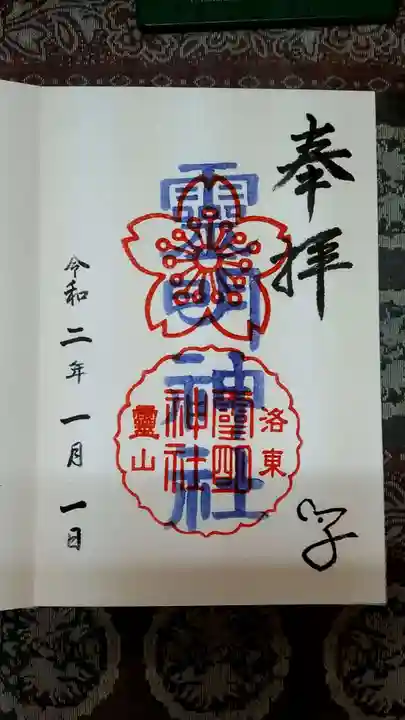 奉拝
霊明神社
洛東
霊明
神社
靈山
令和二年一月一日